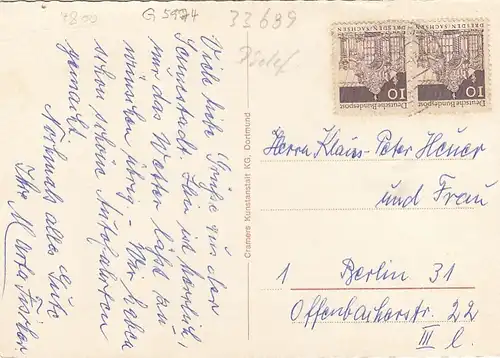 4800
G 5974
33 639
Viele liebe Grüße aus der
Senne hier ist herrlich,
nur das Wetter läßt zu
wünschen übrig – Wir haben
schon schöne Autofahrten
gemacht.
Nochmals alles Gute
Ihre Marta Fischer
Cramers Kunstanstalt KG, Dortmund
10
Deutsche Bundespost
DRESDEN/SACHSEN
10
Deutsche Bundespost
DRESDEN/SACHSEN
Herrn Klaus-Peter Heuer
und Frau
1 Berlin 31
Offenbacherstr. 22
III l.